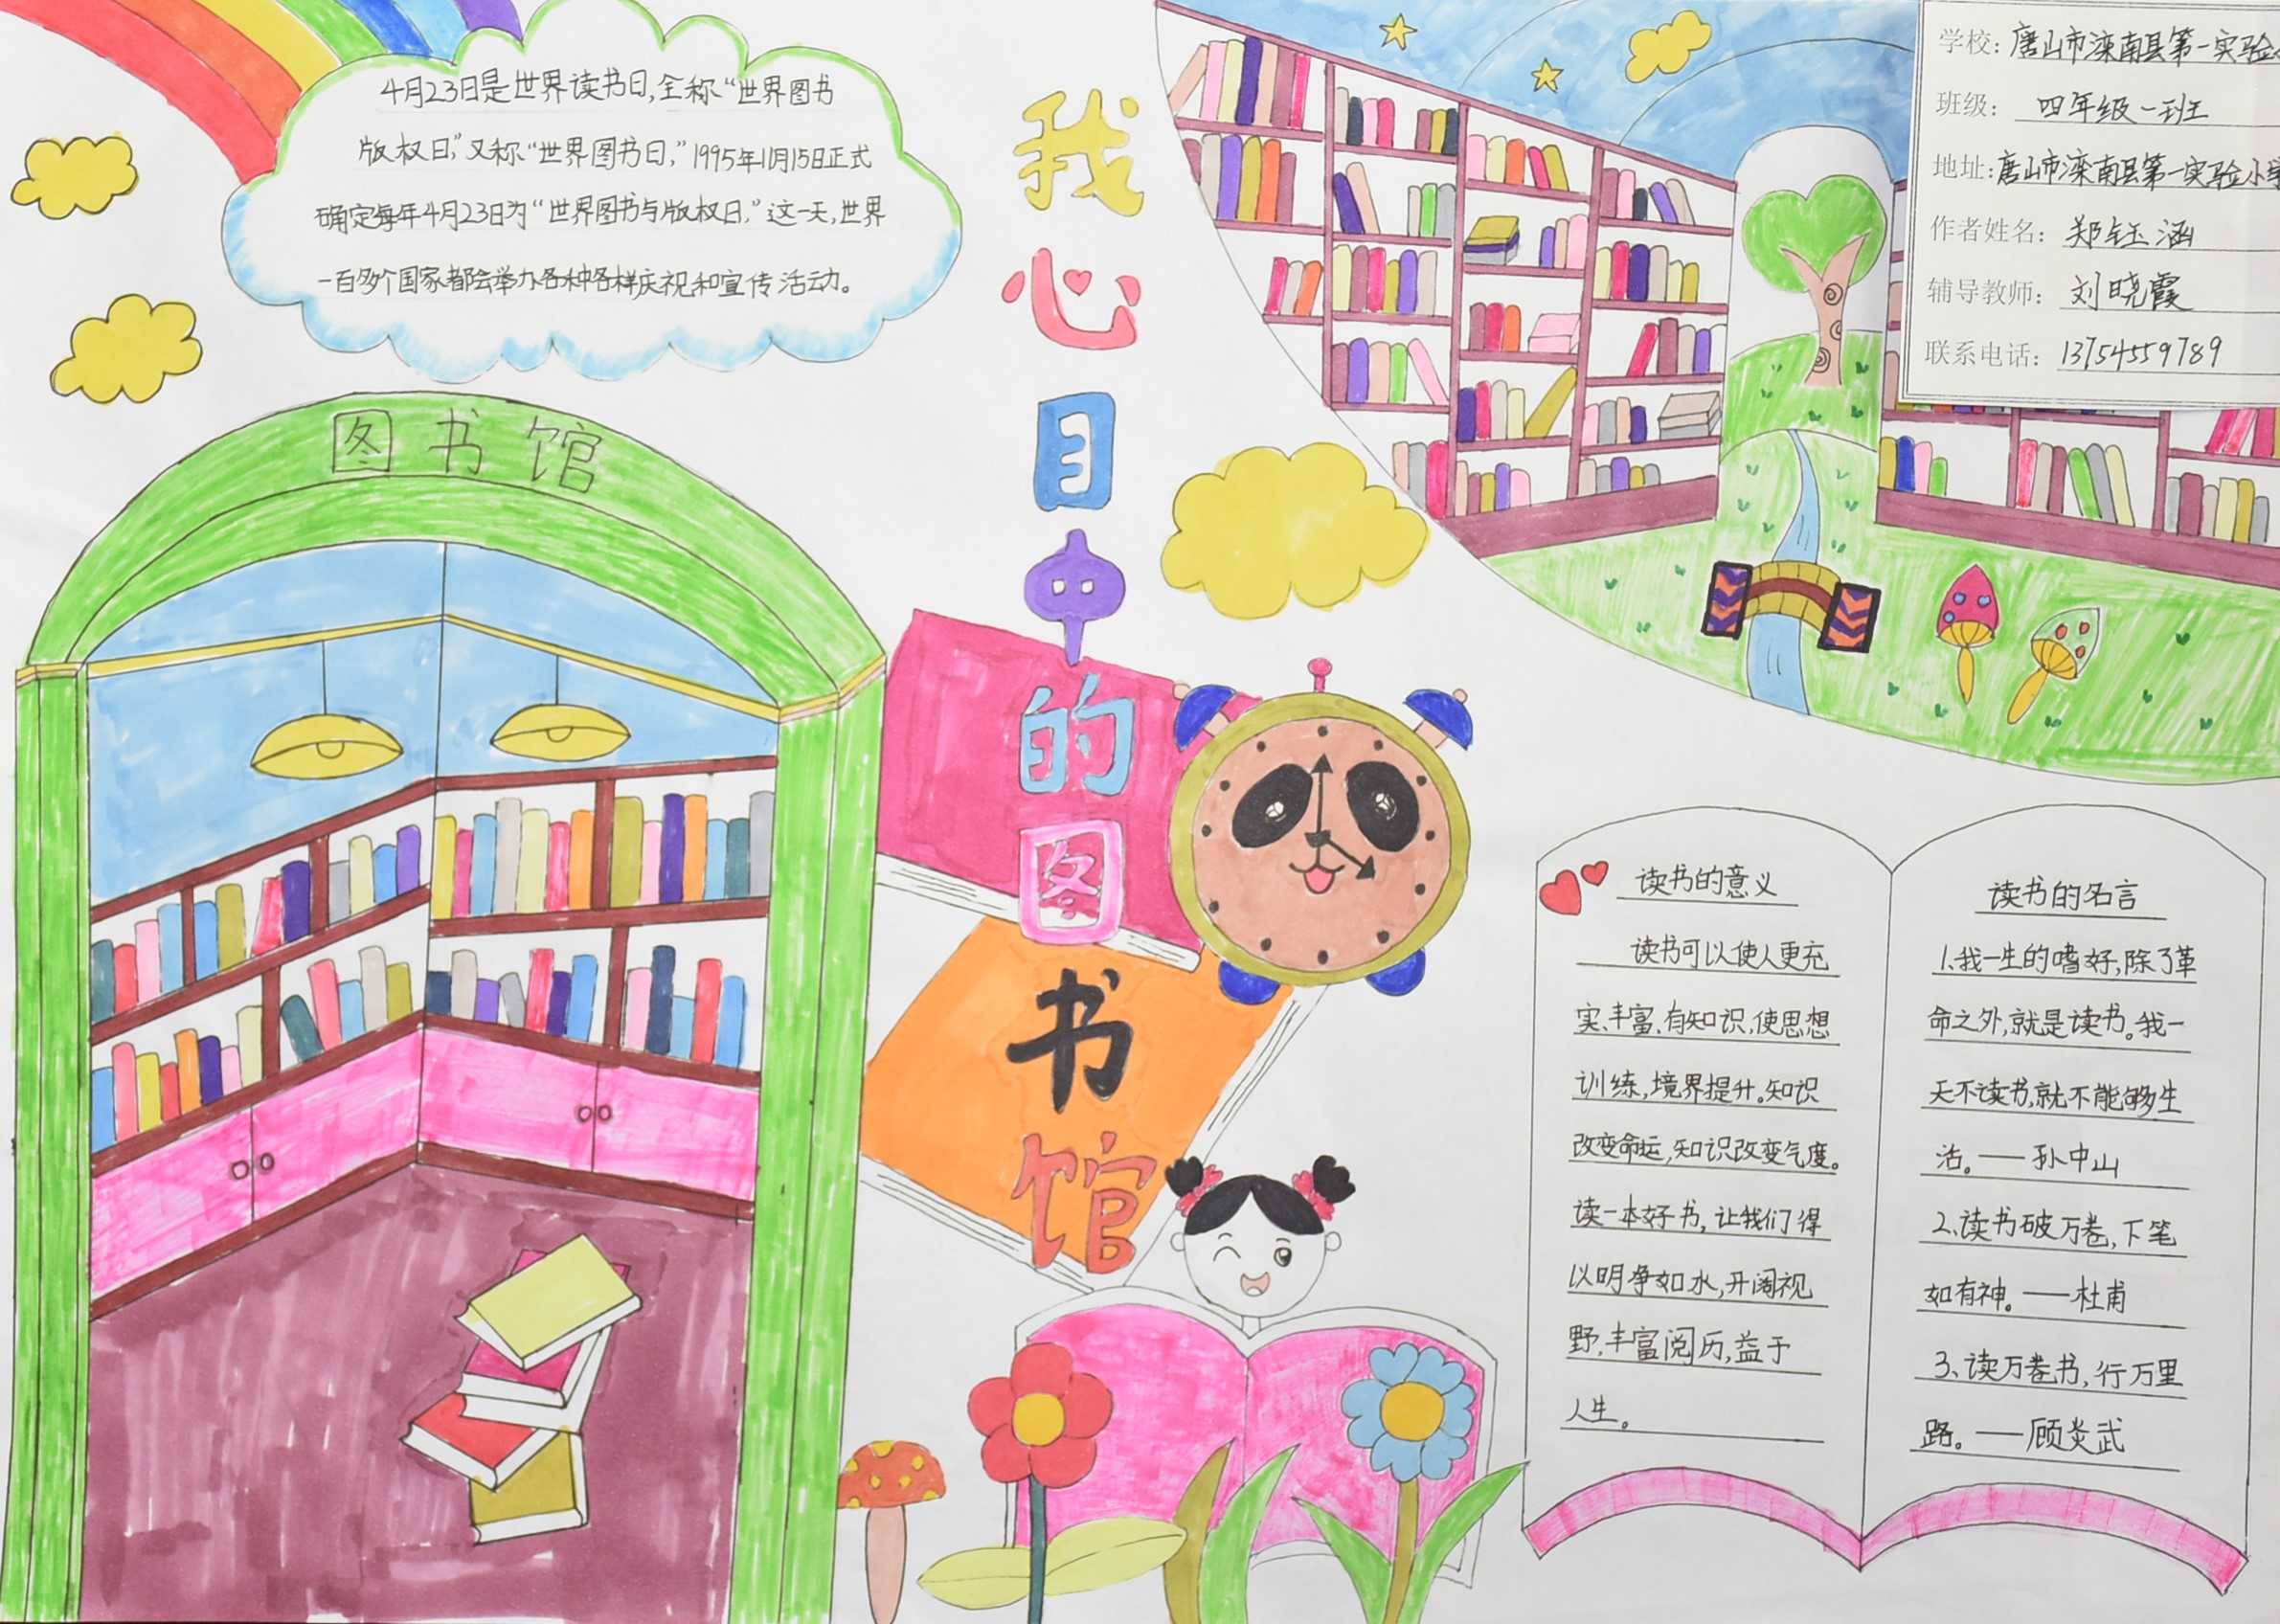 4月23日是世界读书日,全称“世界图书
版权日,”又称“世界图书日,”1995年11月15日正式
确定每年4月23日为“世界图书与版权日,”这一天,世界
一百多个国家都会举办各种各样庆祝和宣传活动。
图书馆
我心目中的图书馆
学校:唐山市滦南县第一实验
班级:四年级一班
地址:唐山市滦南县第一实验小学
作者姓名:郑钰涵
辅导教师:刘晓霞
联系电话:13754559789
读书的意义
读书可以使人更充
实、丰富、有知识,使思想
训练,境界提升。知识
改变命运,知识改变气度。
读一本好书,让我们得
以明净如水,开阔视
野,丰富阅历,益于
人生。
读书的名言
1、我一生的嗜好,除了革
命之外,就是读书。我一
天不读书,就不能够生
活。——孙中山
2、读书破万卷,下笔
如有神。——杜甫
3、读万卷书,行万里
路。——顾炎武